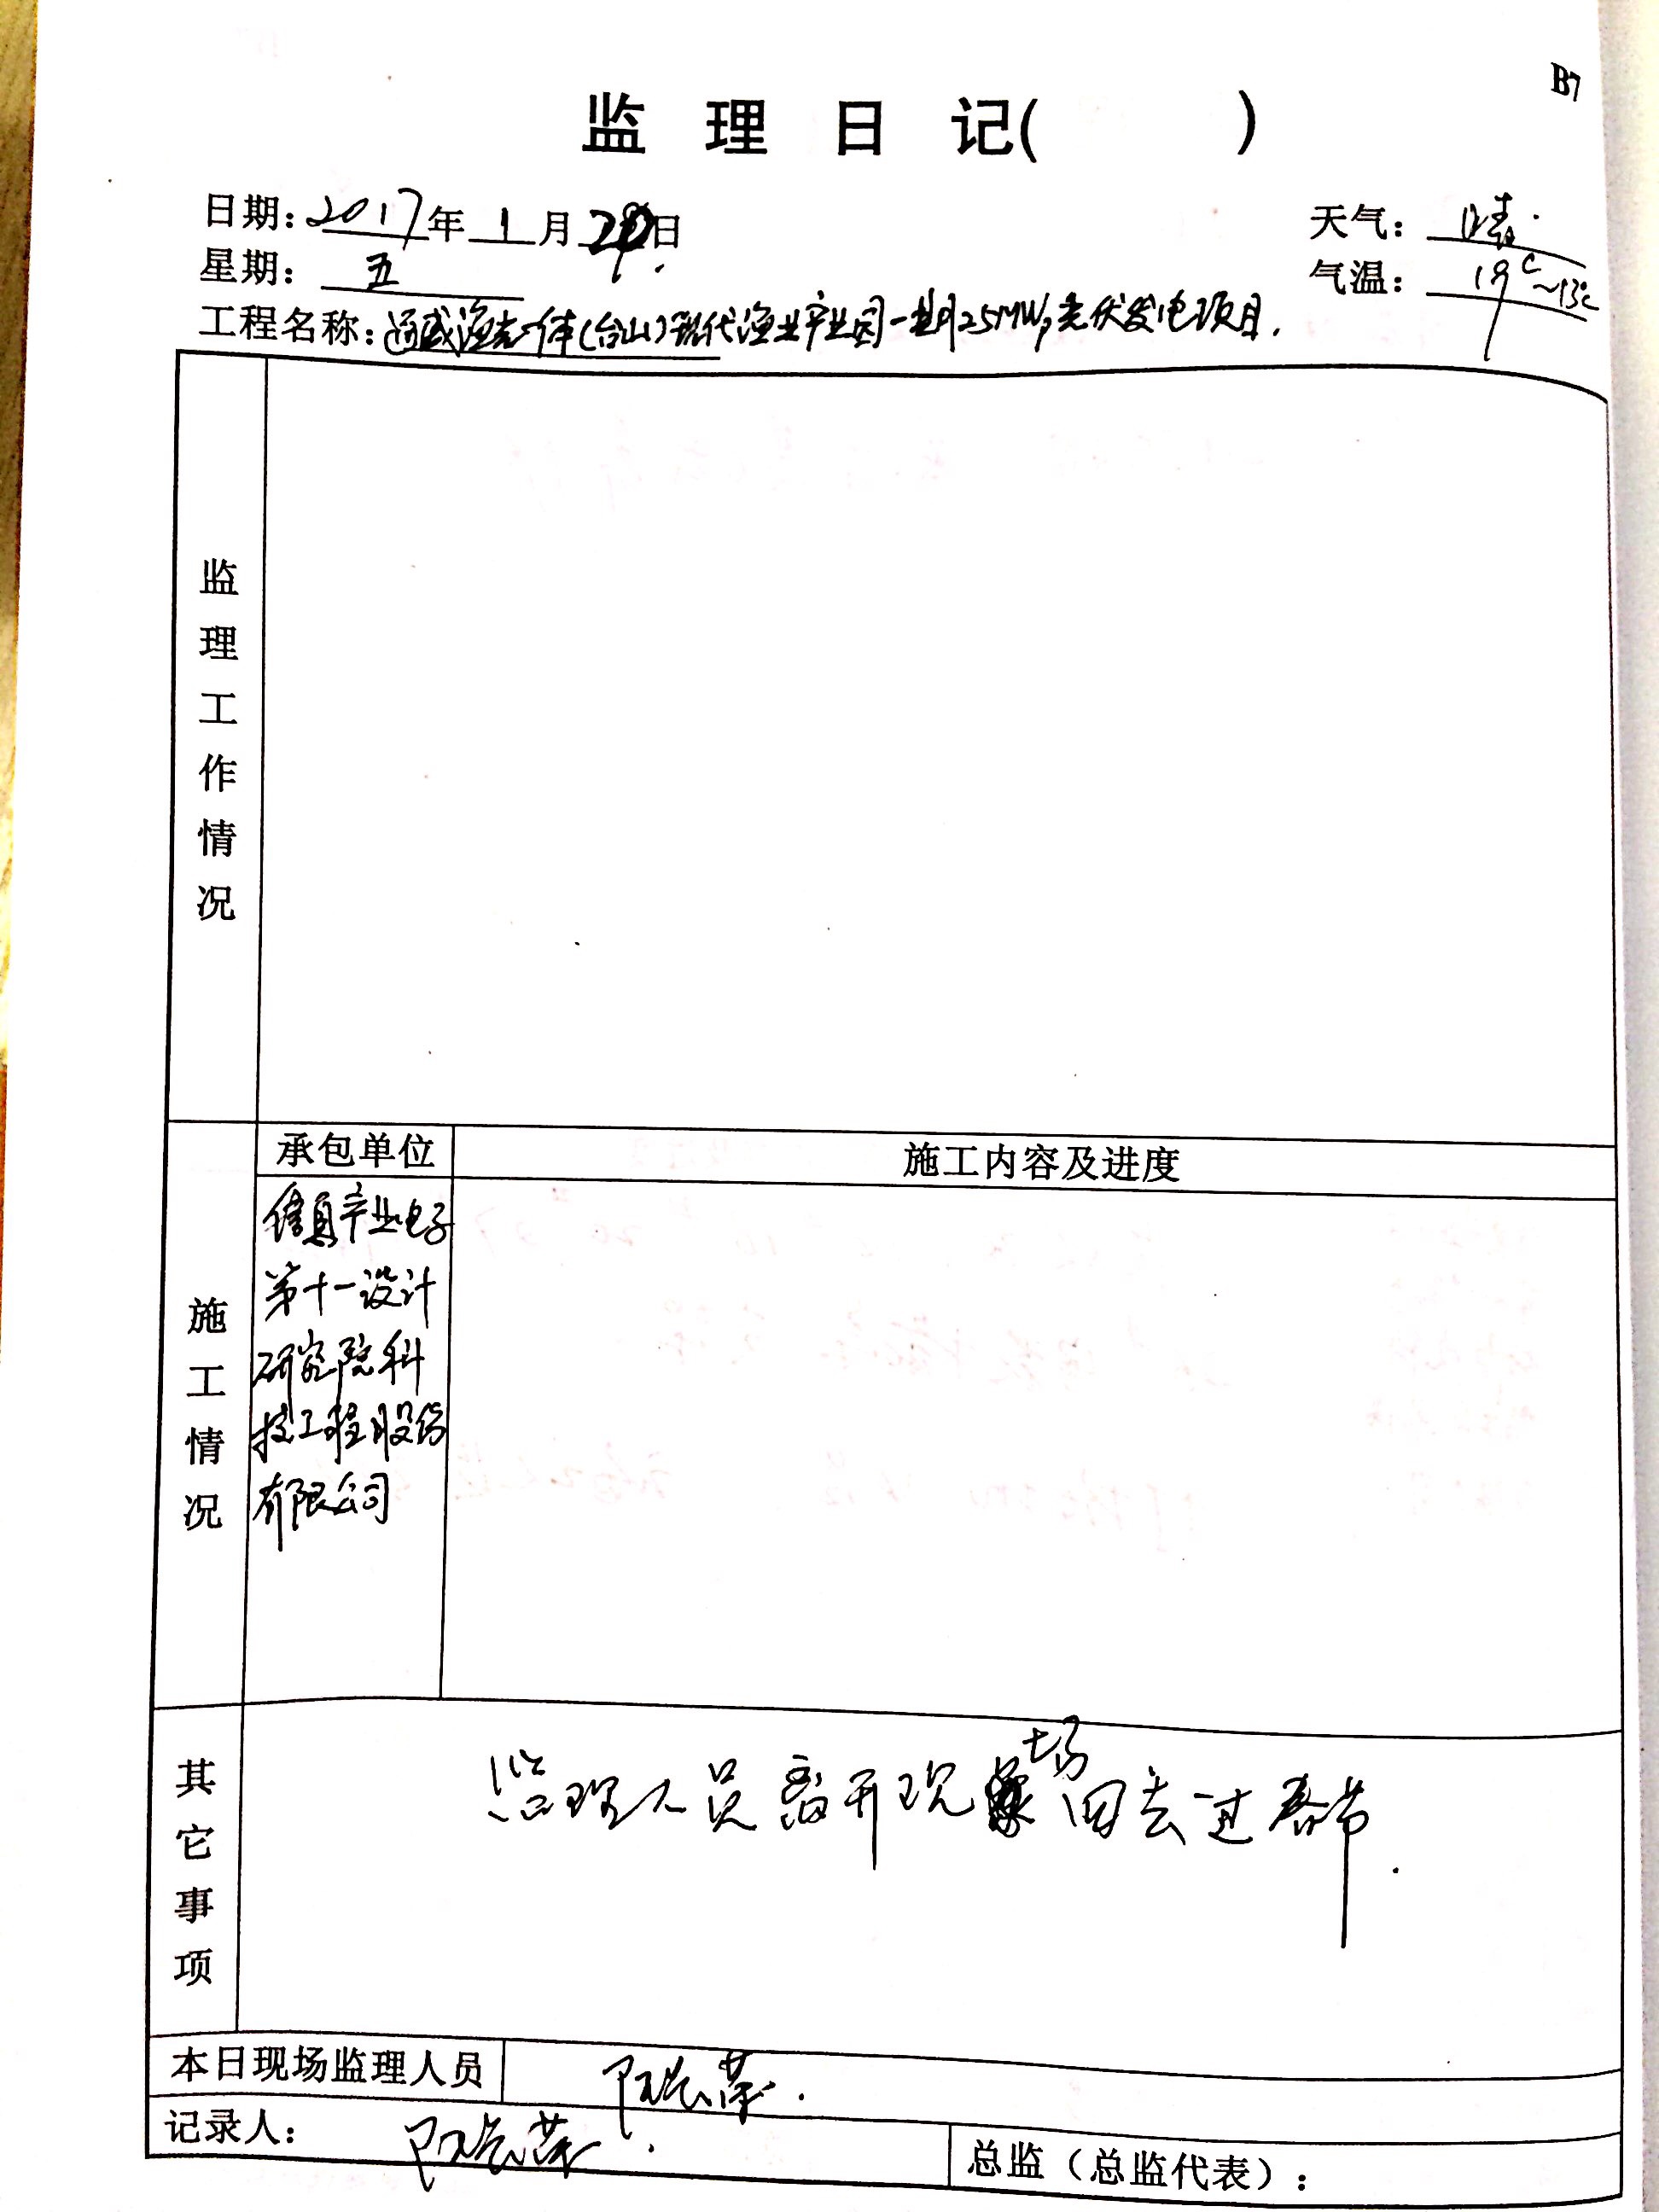 B7
监 理 日 记( )
日期: 2017年 1 月 20日
天气: 晴.
星期: 五
气温: 19℃~13℃
工程名称: 通威渔光一体(台山)现代渔业产业园一期25MWp光伏发电项目.
监理工作情况
承包单位
施工内容及进度
施工情况
信息产业电子
第十一设计
研究院科
技工程股份
有限公司
其它事项
监理人员离开现场回去过春节.
本日现场监理人员
记录人:
总监(总监代表):